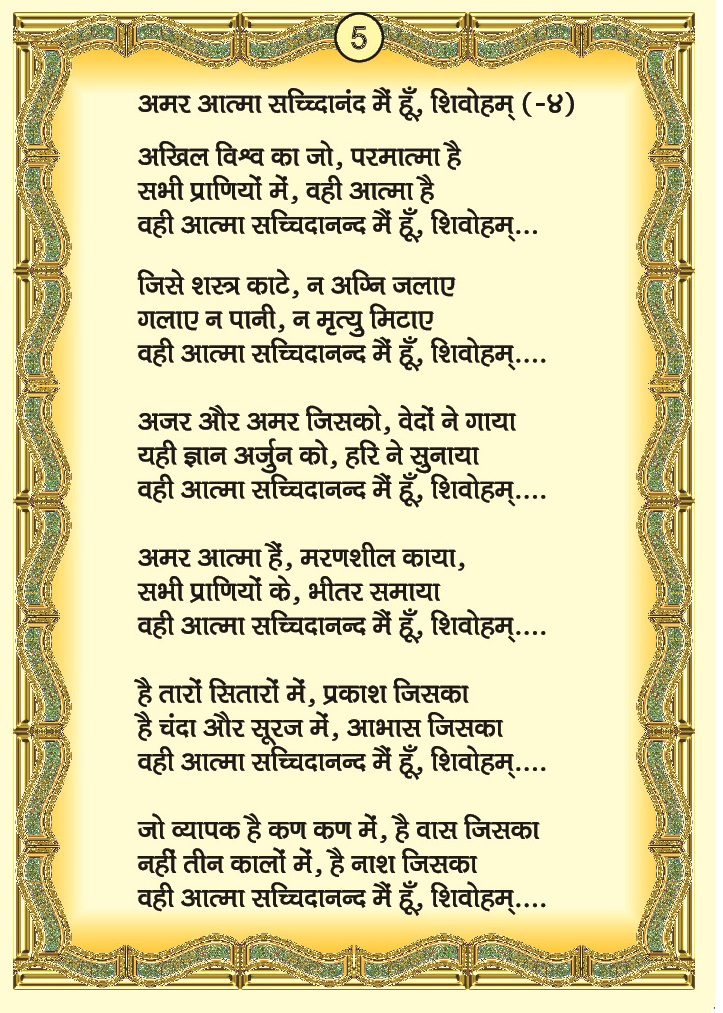 5
अमर आत्मा सच्चिदानंद मैं हूँ, शिवोहम् (-४)
अखिल विश्व का जो, परमात्मा है
सभी प्राणियों में, वही आत्मा है
वही आत्मा सच्चिदानन्द मैं हूँ, शिवोहम्...
जिसे शस्त्र काटे, न अग्नि जलाए
गलाए न पानी, न मृत्यु मिटाए
वही आत्मा सच्चिदानन्द मैं हूँ, शिवोहम्....
अजर और अमर जिसको, वेदों ने गाया
यही ज्ञान अर्जुन को, हरि ने सुनाया
वही आत्मा सच्चिदानन्द मैं हूँ, शिवोहम्....
अमर आत्मा हैं, मरणशील काया,
सभी प्राणियों के, भीतर समाया
वही आत्मा सच्चिदानन्द मैं हूँ, शिवोहम्....
है तारों सितारों में, प्रकाश जिसका
है चंदा और सूरज में, आभास जिसका
वही आत्मा सच्चिदानन्द मैं हूँ, शिवोहम्....
जो व्यापक है कण कण में, है वास जिसका
नहीं तीन कालों में, है नाश जिसका
वही आत्मा सच्चिदानन्द मैं हूँ, शिवोहम्....